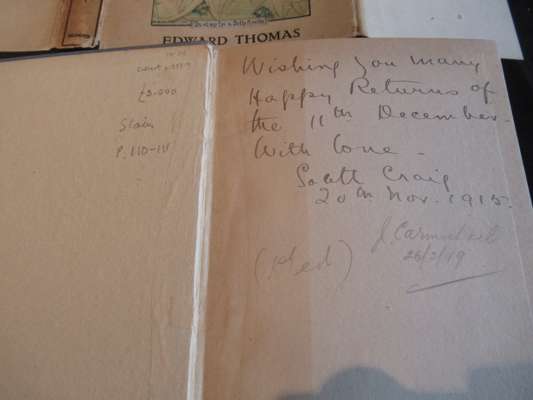 EDWARD THOMAS
£3.000
Stain
P. 110-111
Wishing you many
Happy Returns of
the 11th December.
With love -
Scott Craig
20th Nov. 1915.
J. Carmichael
26/3/19